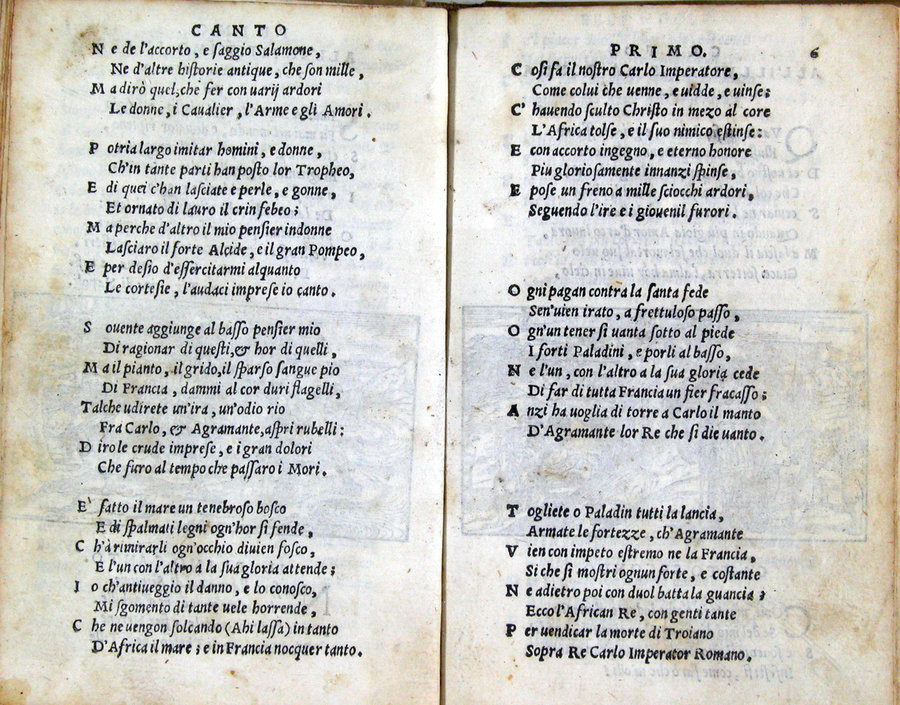 CANTO
Ne de l'accorto, e saggio Salamone,
Ne d'altre historie antique, che son mille,
Ma dirò quel, che fer con uarij ardori
Le donne, i Caualier, l'Arme e gli Amori.
Potria largo imitar homini, e donne,
Ch'in tante parti han posto lor Tropheo,
E di quei c'han lasciate e perle, e gonne,
Et ornato di lauro il crin febeo;
Ma perche d'altro il mio pensier indonne
Lasciaro il forte Alcide, e il gran Pompeo,
E per desio d'essercitarmi alquanto
Le cortesie, l'audaci imprese io canto.
Souente aggiunge al basso pensier mio
Di ragionar di questi, & hor di quelli,
Ma il pianto, il grido, il sparso sangue pio
Di Francia, dammi al cor duri flagelli,
Talche udirete un'ira, un'odio rio
Fra Carlo, & Agramante, aspri rubelli;
Diro le crude imprese, e i gran dolori
Che furo al tempo che passaro i Mori.
E' fatto il mare un tenebroso bosco
E di spalmati legni ogn'hor si fende,
Ch'à rimirarli ogn'occhio diuien fosco,
E l'un con l'altro a la sua gloria attende;
Io ch'antiueggio il danno, e lo conosco,
Mi sgomento di tante uele horrende,
Che ne uengon solcando (Ahi lassa) in tanto
D'Africa il mare; e in Francia nocquer tanto.
PRIMO. 6
Cosi fa il nostro Carlo Imperatore,
Come colui che uenne, e uidde, e uinse;
C'hauendo sculto Christo in mezo al core
L'Africa tolse, e il suo nimico estinse:
E con accorto ingegno, e eterno honore
Piu gloriosamente innanzi spinse,
E pose un freno a mille sciocchi ardori,
Seguendo l'ire e i giouenil furori.
Ogni pagan contra la santa fede
Sen'uien irato, a frettuloso passo,
Ogn'un tener si uanta sotto al piede
I forti Paladini, e porli al basso,
Ne l'un, con l'altro a la sua gloria cede
Di far di tutta Francia un fier fracasso;
Anzi ha uoglia di torre a Carlo il manto
D'Agramante lor Re che si die uanto.
Togliete o Paladin tutti la lancia,
Armate le fortezze, ch'Agramante
Vien con impeto estremo ne la Francia,
Si che si mostri ognun forte, e costante
Ne adietro poi con duol batta la guancia;
Ecco l'African Re, con genti tante
Per uendicar la morte di Troiano
Sopra Re Carlo Imperator Romano.